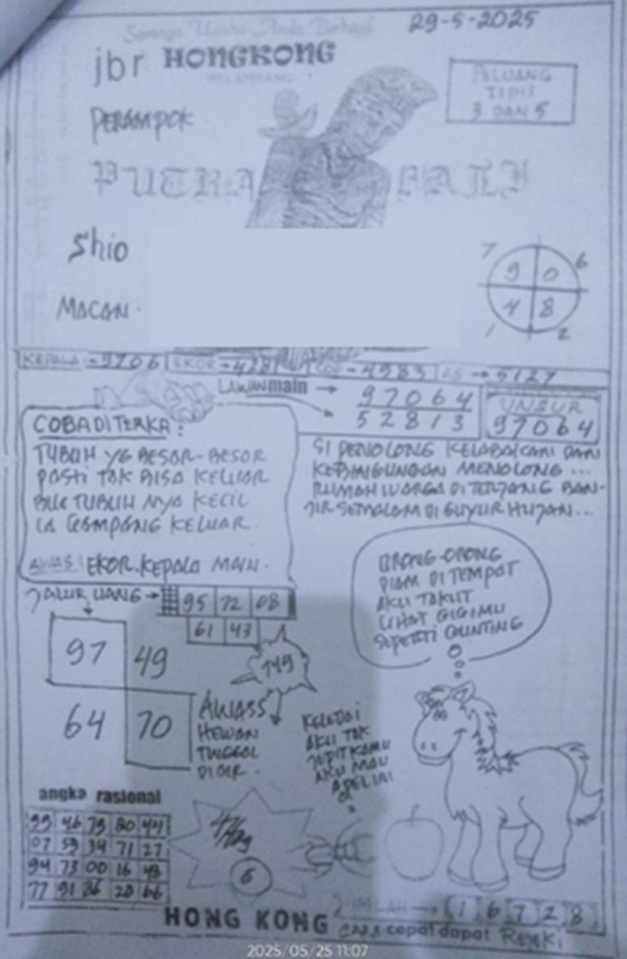 Semoga Usaha Anda Berhasil
29-5-2025
jbr HONGKONG
PELUANG
TIPIS
3 DAN 5
PERAMPOK
PUTRA BALI
Shio
MACAN.
7 6
9 0
4 8
1 2
KEPALA → 9706 EKOR → 4281 COP → 4983 AS → 5127
LAWAN main → 97064
52813
UNSUR
97064
COBA DITERKA:
TUBUH YG BESAR-BESAR
PASTI TAK BISA KELUAR
BILA TUBUH NYA KECIL
IA GAMPANG KELUAR.
AWAS! EKOR.KEPALA MAIN.
SI PENOLONG
MENOLONG ...
RUMAH WARGA DI TERJANG BAN-
JIR SEMALAM DI GUYUR HUJAN...
JALUR UANG → 95 72 08
61 43
ORONG-ORONG
DIAM DI TEMPAT
AKU TAKUT
LIHAT GIGIMU
SEPERTI GUNTING
97 49
64 70
749
AWASS
HEWAN
TINGGAL
DI AIR.
KELEDAI
AKU TAK
JEPIT KAMU
AKU MAU
APEL INI
angka rasional
99 46 79 80 44
07 59 34 71 27
94 73 00 16 48
77 91 86 28 66
6
JUMLAH → 1 6 7 2 8
HONG KONG
CARA cepat dapat Rejeki
2025/05/25 11:07